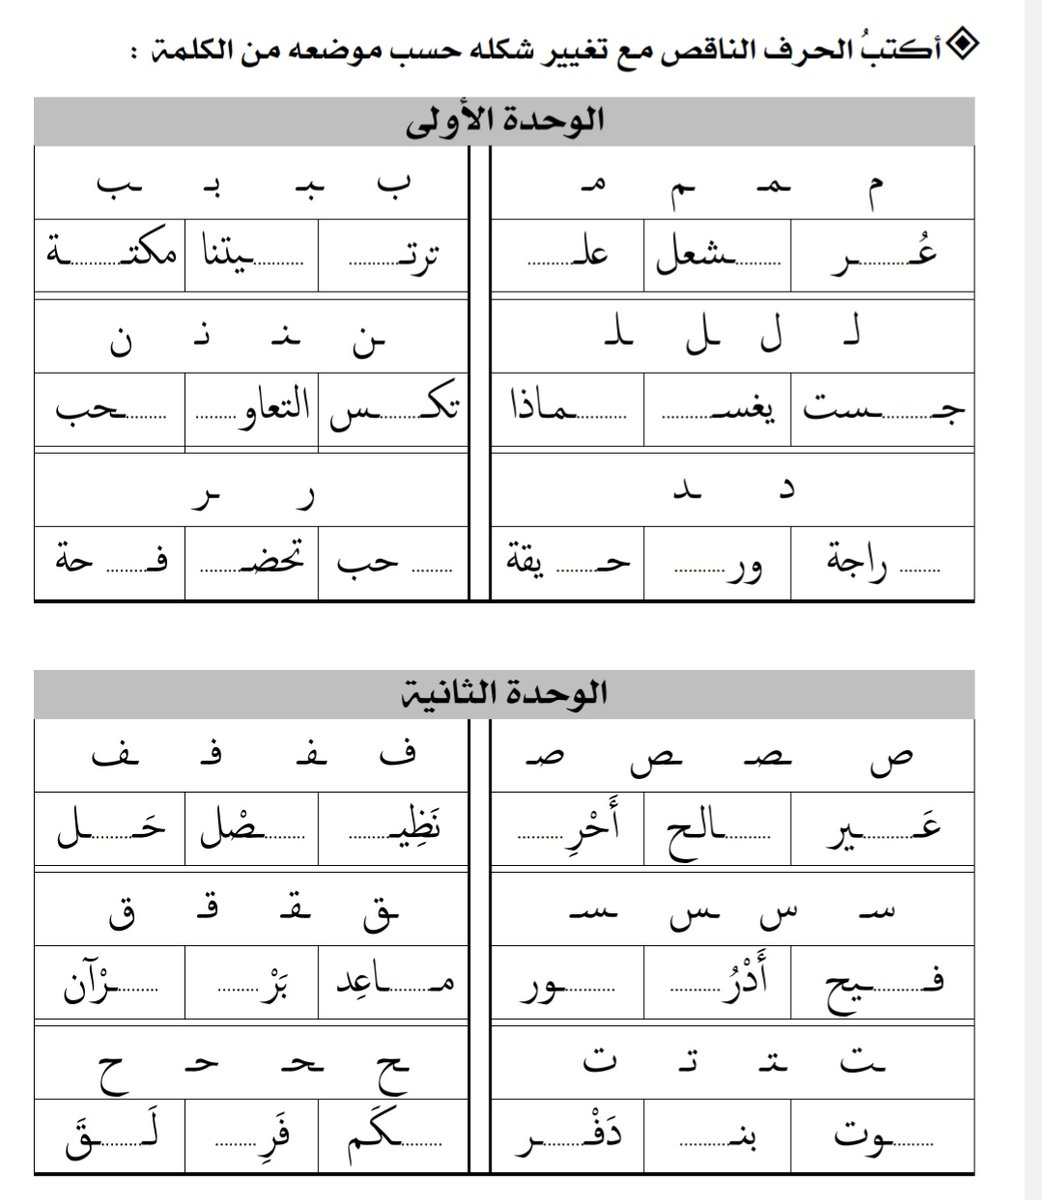 أكتبُ الحرف الناقص مع تغيير شكله حسب موضعه من الكلمة :
الوحدة الأولى
م ـمـ ـم مـ
عُـ.........ـر
.........ـشعل
علـ.........
ب ـبـ بـ ـب
ترتـ.........
.........ـيتنا
مكتـ.........ـة
لـ ل ـل ـلـ
جـ.........ـست
يغسـ.........
.........ـماذا
ـن ـنـ نـ ن
تكـ.........ـس
التعاو ........
........ـحب
د ـد
........ راجة
ور .........
حـ........ يقة
ر ـر
........ حب
تحضـ........
فـ........ حة
الوحدة الثانية
ص ـصـ ـص صـ
عَـ.........ـير
.........ـالح
أَحْرِ.........
ف ـفـ فـ ـف
نَظِيـ.........
........ـضْل
حَـ........ـل
سـ س ـس ـسـ
فـ.........ـيح
أَدْرُ .........
.........ـور
ـق ـقـ قـ ق
مـ........ـاعِد
بَرْ ........
........ـرْآن
ـت ـتـ تـ ت
........ـوت
بنـ.........
دَفْـ........ـر
ـح ـحـ حـ ح
........ـكَم
فَرِ ........
لَـ........ـقَ